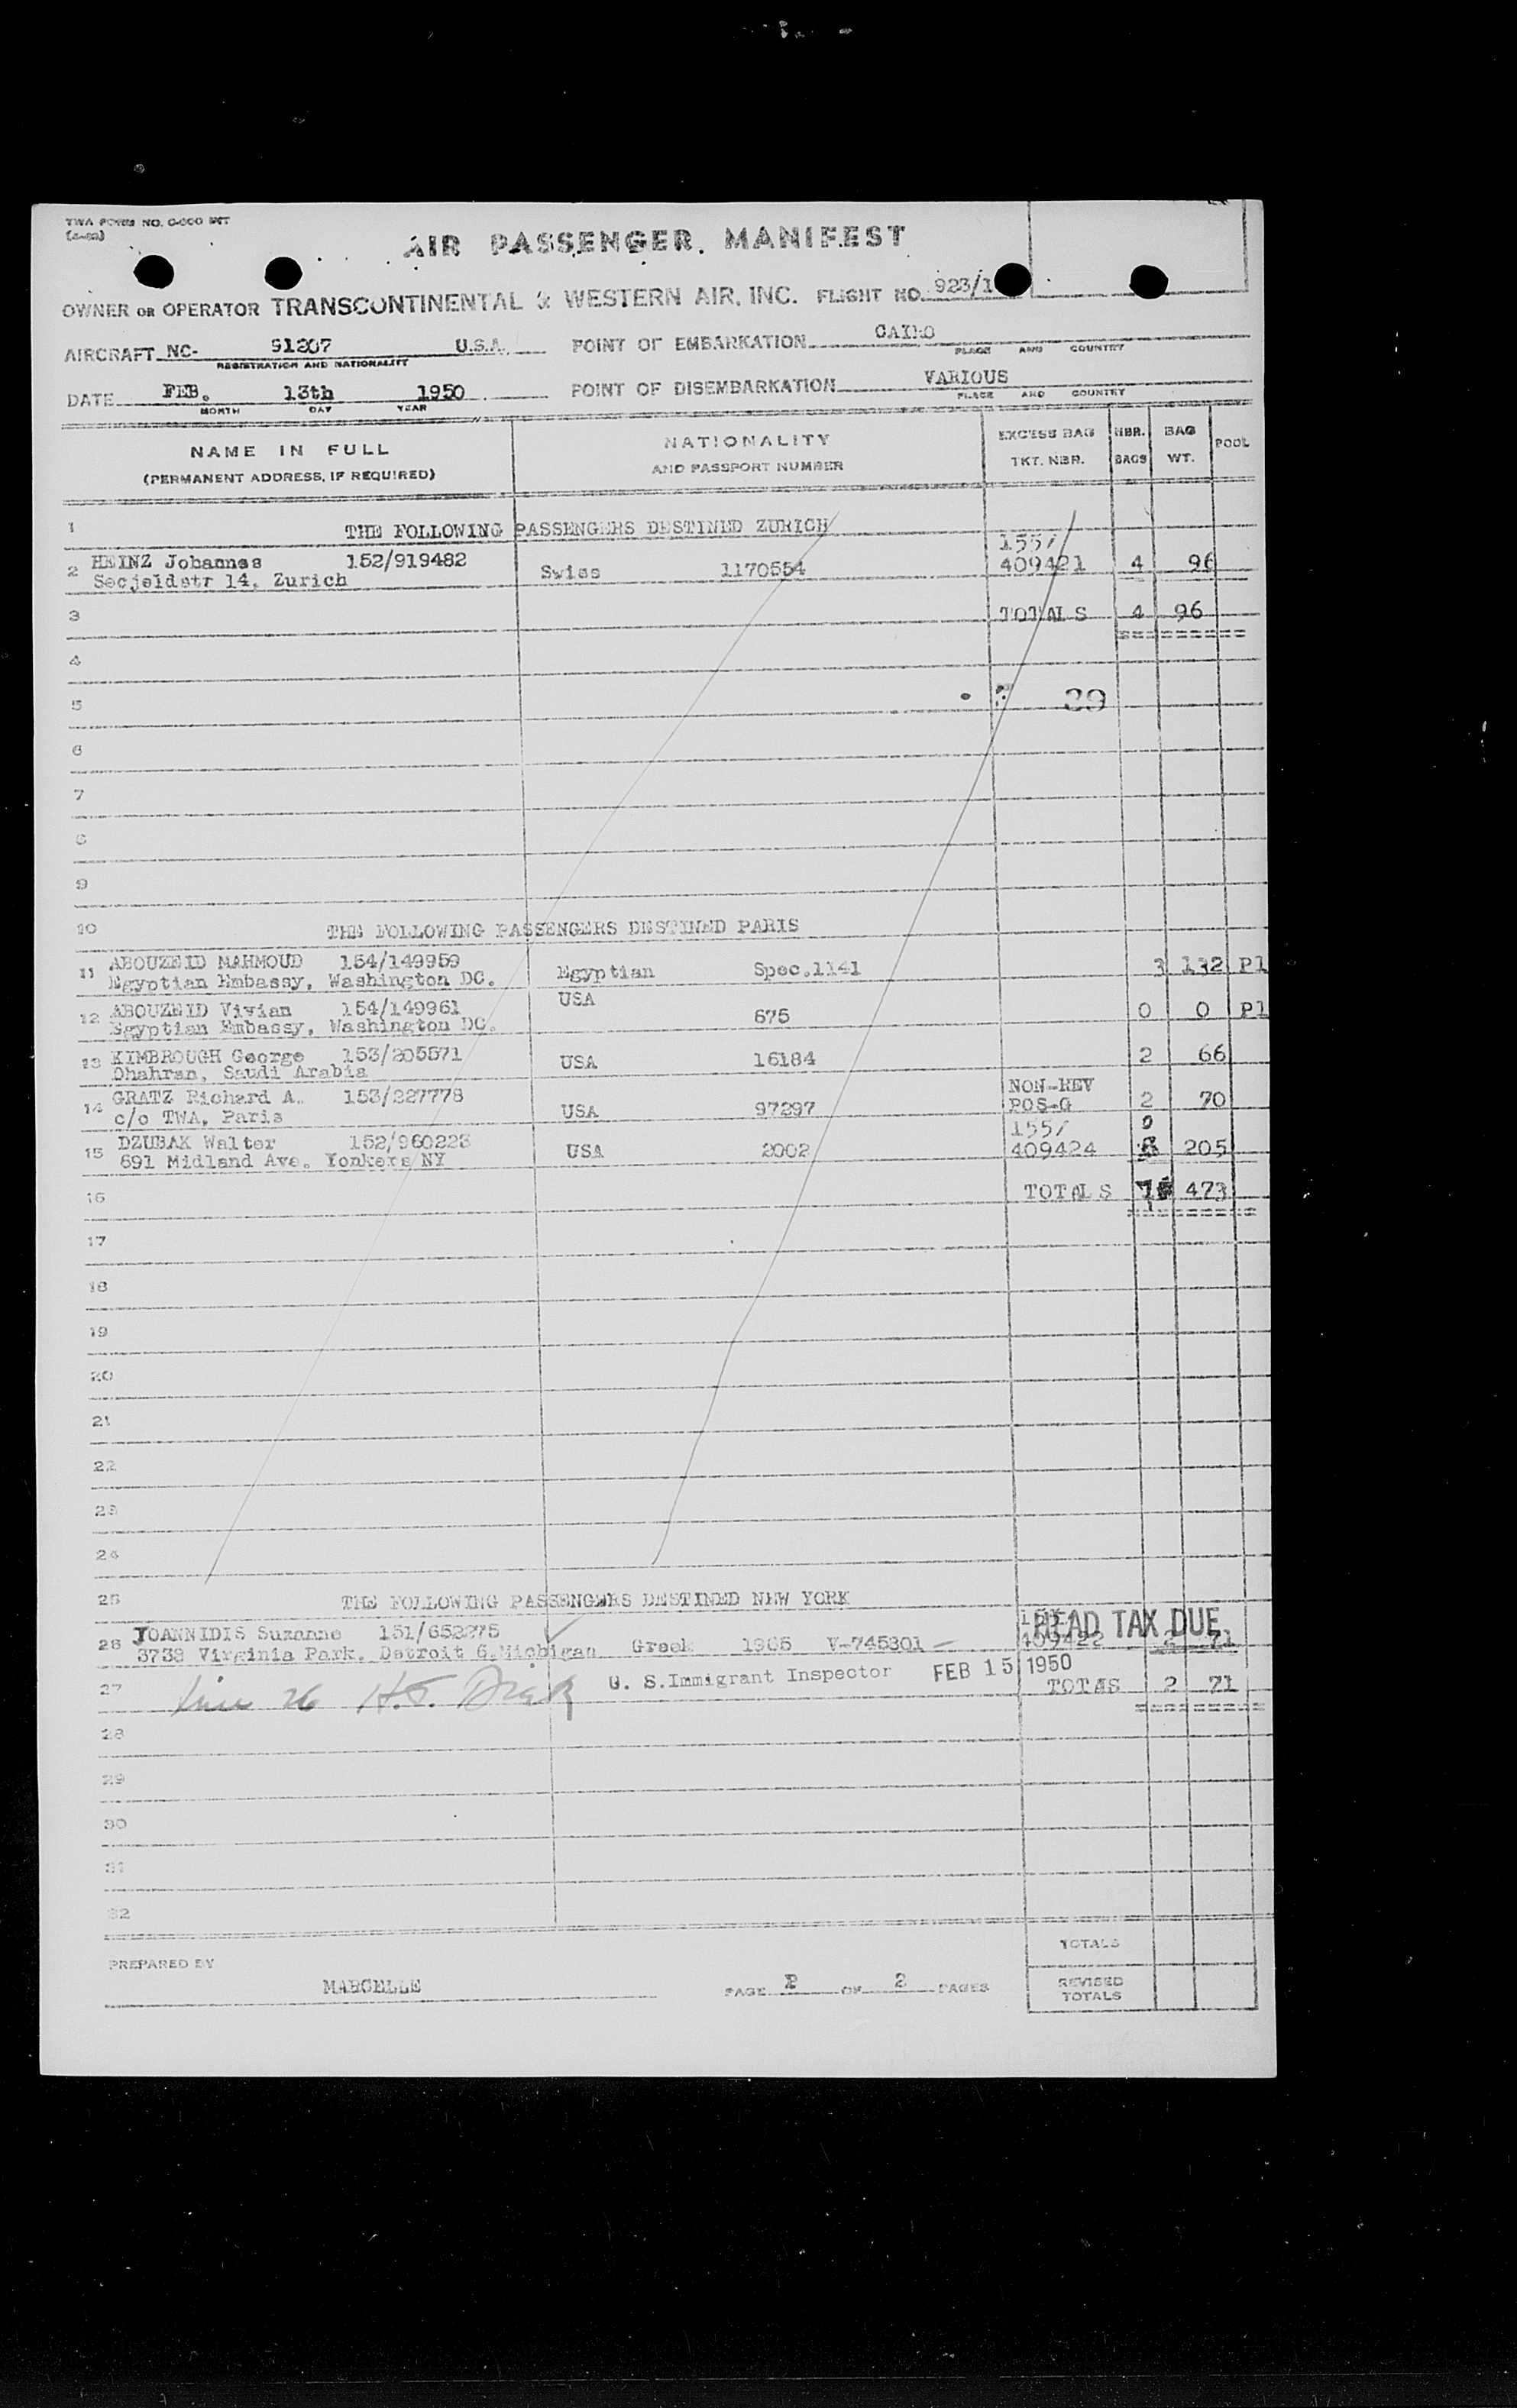 TWA FORM NO. C-600 INT
AIR PASSENGER MANIFEST
OWNER OR OPERATOR TRANSCONTINENTAL & WESTERN AIR, INC. FLIGHT NO. 923/1
AIRCRAFT NC- 91207 U.S.A. POINT OF EMBARKATION CAIRO
REGISTRATION AND NATIONALITY PLACE AND COUNTRY
DATE FEB. 13th 1950 POINT OF DISEMBARKATION VARIOUS
MONTH DAY YEAR PLACE AND COUNTRY
NAME IN FULL NATIONALITY EXCESS BAG NBR. BAG POOL
(PERMANENT ADDRESS, IF REQUIRED) AND PASSPORT NUMBER TKT. NBR. BAGS WT.
1 THE FOLLOWING PASSENGERS DESTINED ZURICH
155/
2 HEINZ Johannes 152/919482 Swiss 1170554 409421 4 96
Secjeldstr 14, Zurich
3 TOTALS 4 96
4
5 39
6
7
8
9
10 THE FOLLOWING PASSENGERS DESTINED PARIS
11 ABOUZEID MAHMOUD 154/149959 Egyptian Spec.1141 3 132 P1
Egyptian Embassy, Washington DC.
12 ABOUZEID Vivian 154/149961 USA 675 0 0 P1
Egyptian Embassy, Washington DC.
13 KIMBROUGH George 153/205571 USA 16184 2 66
Dhahran, Saudi Arabia
14 GRATZ Richard A. 153/227778 USA 97297 NON-REV POS-G 2 70
c/o TWA, Paris
155/
15 DZUBAK Walter 152/960223 USA 2002 409424 205
691 Midland Ave. Yonkers NY
16 TOTALS 473
17
18
19
20
21
22
23
24
25 THE FOLLOWING PASSENGERS DESTINED NEW YORK
HEAD TAX DUE
26 JOANNIDIS Suzanne 151/652275 Greek 1965 V-745301 409422 2 71
3738 Virginia Park, Detroit 6.Michigan
27 Line 26 U. S. Immigrant Inspector FEB 15 1950 TOTALS 2 71
28
29
30
31
32
TOTALS
PREPARED BY MARCELLE PAGE 2 OF 2 PAGES REVISED TOTALS